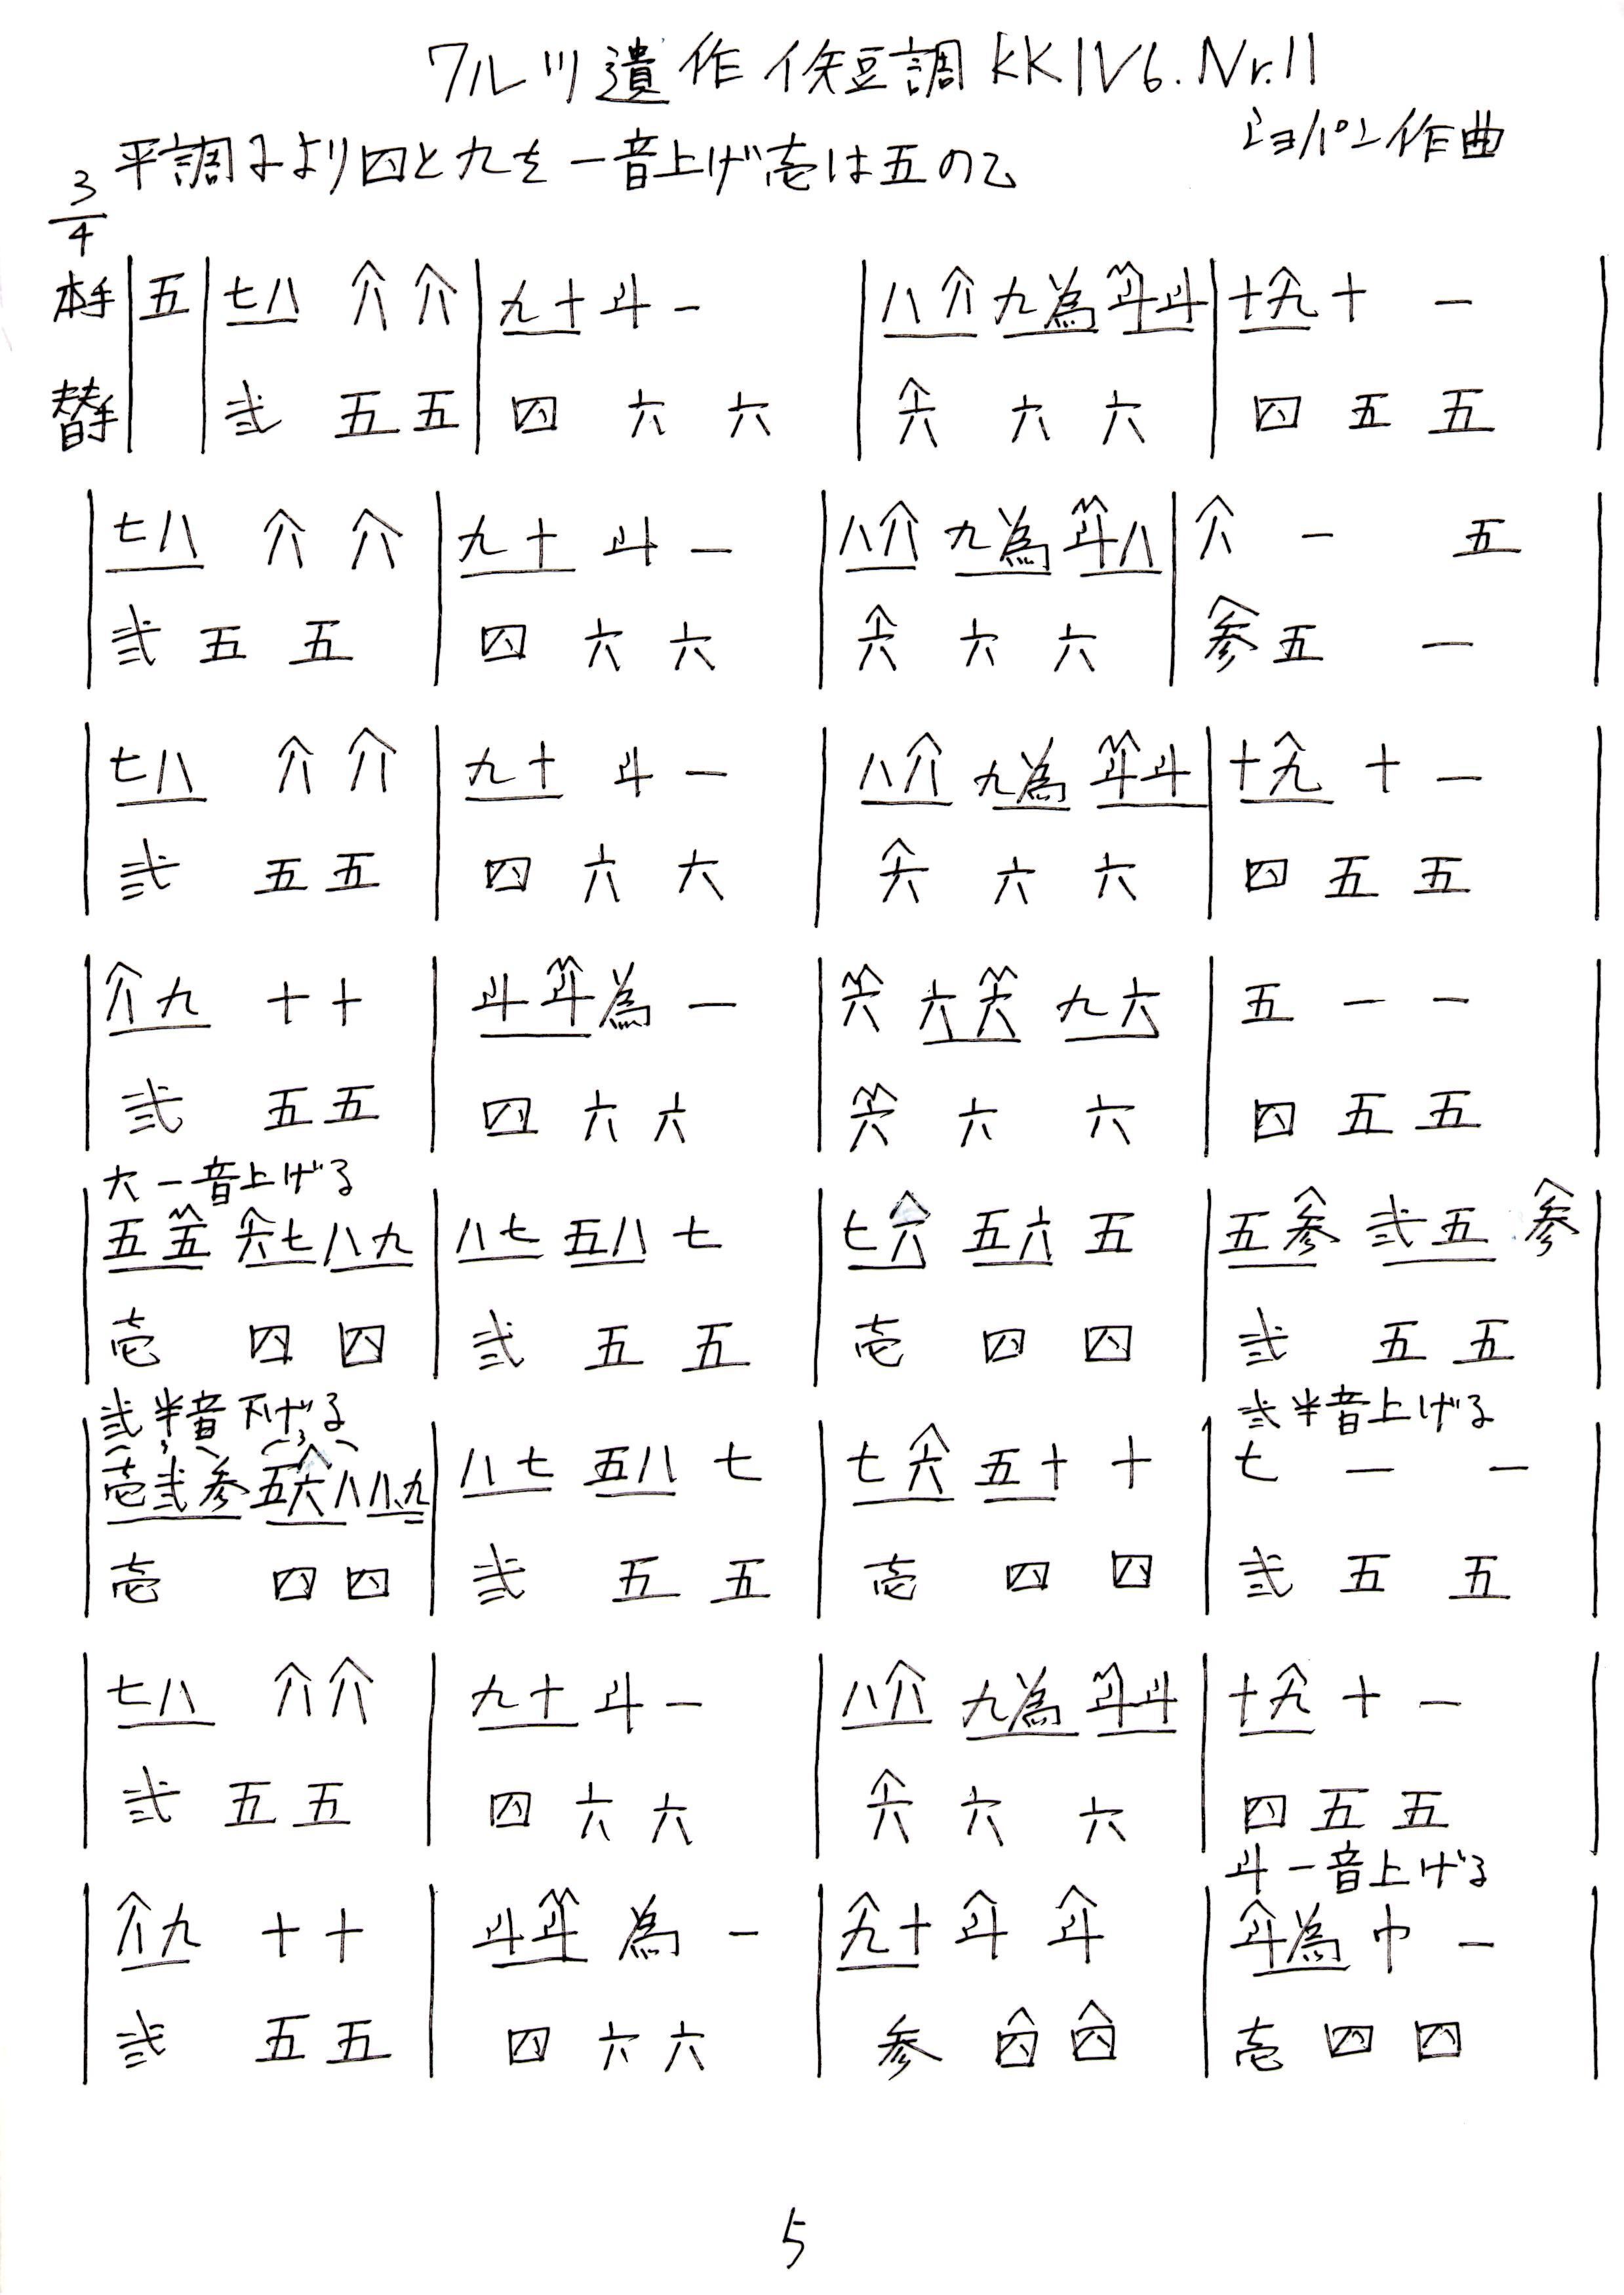 ワルツ遺作 イ短調 KK IVb. Nr.11
ショパン作曲
平調子より四と九を一音上げ壱は五の乙
3/4
本手 五 七八 八 八 九十斗 一 八八 九為 斗斗 十九十 一
替手 弐 五 五 四 六 六 六 六 六 四 五 五
七八 八 八 九十 斗 一 八八 九為 斗八 八 一 五
弐 五 五 四 六 六 六 六 六 参 五 一
七八 八 八 九十 斗 一 八八 九為 斗斗 十九 十 一
弐 五 五 四 六 六 六 六 六 四 五 五
八九 十 十 斗斗 為 一 六 六六 九六 五 一 一
弐 五 五 四 六 六 六 六 六 四 五 五
六一音上げる
五五 六七 八九 八七 五八 七 七六 五六 五 五参 弐五 参
壱 四 四 弐 五 五 壱 四 四 弐 五 五
弐半音下げる 弐半音上げる
壱弐参 五六八 八、九 八七 五八 七 七六 五十 十 七 一 一
壱 四 四 弐 五 五 壱 四 四 弐 五 五
七八 八 八 九十 斗 一 八八 九為 斗斗 十九 十 一
弐 五 五 四 六 六 六 六 六 四 五 五
斗一音上げる
八九 十 十 斗斗 為 一 九十 斗 斗 斗為 巾 一
弐 五 五 四 六 六 参 四 四 壱 四 四
5